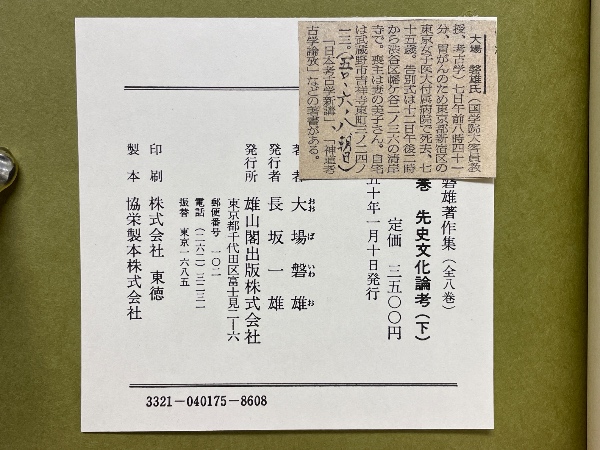 大場 磐雄氏（国学院大客員教
授、考古学）七日午前八時四十一
分、胃がんのため東京都新宿区の
東京女子医大付属病院で死去、七
十五歳。告別式は十二日午後二時
から渋谷区幡ケ谷二ノ三六の清岸
寺で。喪主は妻の美子さん。自宅
は武蔵野市吉祥寺東町三ノ二四ノ
一三。（五〇、六、八 朝日）
「日本考古学新講」、「神道考
古学論攷」などの著書がある。
磐雄著作集（全八巻）
巻 先史文化論考（下）
五十年一月十日発行
定価 三五〇〇円
著者 大場磐雄
おお ば いわ お
発行者 長坂一雄
発行所 雄山閣出版株式会社
東京都千代田区富士見二―六
郵便番号 一〇二
電話（二六二）三二三一
振替 東京一六八五
印刷 株式会社 東徳
製本 協栄製本株式会社
3321―040175―8608